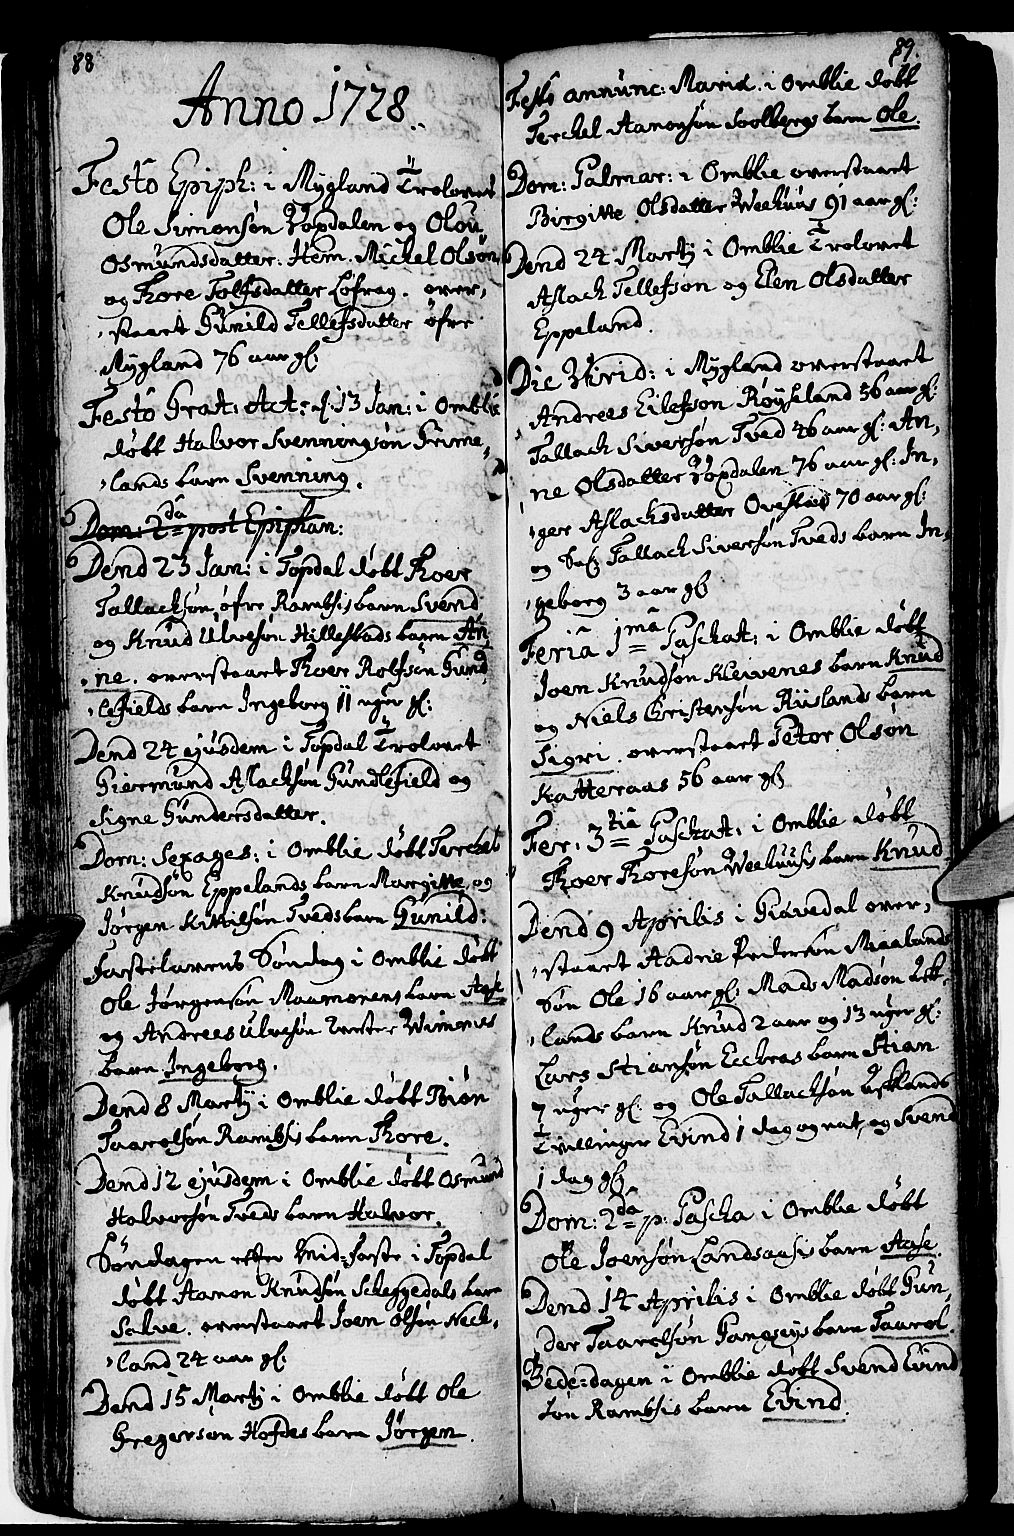 88
Anno 1728.
Festo Epiph: i Mygland Trolovet
Ole Simonsøn Topdalen og Olou
Osmundsdatter. Item. Michel Olsøn
og Thore Tolfsdatter Løfrag. over,
,staaet Gunild Tellefsdatter øfre
Mygland 76 aar gl.
Festo Grat: Act: d. 13 Jan: i Omblie
døbt Halvor Svenningsøn Grime,
,lands barn Svenning.
Dom: 2da post Epiphan:
Dend 23 Jan: i Topdal døbt Thoer
Tallacksøn øfre Rambsis barn Svend
og Knud Ulvesøn Hillestads barn An,
,ne. overstaaet Thoer Rolfsøn Gund,
,lefields barn Ingeborg 11 uger gl:
Dend 24 ejusdem i Topdal Trolovet
Giermund Aslacksøn Gundlefield og
Signe Gundersdatter.
Dom: Sexages: i Omblie døbt Terchel
Knudsøn Eppelands barn Margitte og
Jørgen Kittilsøn Tveds barn Gunild:
Fastelavens Søndag i Omblie døbt
Ole Jørgensøn Maamoens barn Aase
og Andrees Ulvesøn Vester Wimenes
barn Ingeborg.
Dend 8 Martij i Omblie døbt Biøn
Taarelsøn Rambsis barn Thore.
Dend 12 ejusdem i Omblie døbt Osmund
Halvorsøn Tveds barn Halvor.
Søndagen efter Mid-faste i Topdal
døbt Aamon Knudsøn Scheggedals barn
Salve. overstaaet Joen Olsøn Neck,
,land 24 aar gl.
Dend 15 Martij i Omblie døbt Ole
Gregersøn Hofdes barn Jørgen.
89.
Festo annunc: Mariæ. i Omblie døbt
Terchel Aamonsøn Soolbergs barn Ole.
Dom: Palmar: i Omblie overstaaet
Birgitte Olsdatter Weehuus 91 aar gl:
Dend 24 Martij i Omblie Trolovet
Aslach Tellefsøn og Elen Olsdatter
Eppeland.
Die Virid: i Mygland overstaaet
Andrees Eilefsøn Røyseland 56 aar gl:
Tallach Siversøn Tved 46 aar gl: An,
,ne Olsdatter Topdalen 76 aar gl: In,
,ger Aslachsdatter 70 aar gl:
og Sal. Tallach Siversøn Tveds barn In,
,geborg 3 aar gl.
Feria 1ma Paschat: i Omblie døbt
Joen Knudsøn Kleivenes barn Knud
og Niels Christensøn Riislands barn
Sigri. overstaaet Petor Olsøn
Katteraas 56 aar gl.
Fer: 3tia Paschat: i Omblie døbt
Thoer Thoresøn Weehuusis barn Knud.
Dend 9 Aprilis i Giøvedal over,
,staaet Aadne Pedersøn Miaalands
Søn Ole 16 aar gl: Mads Madsøn Ask,
,lands barn Knud 2 aar og 13 uger gl:
Lars Stiansøn Eccheras barn Stian
7 uger gl: og Ole Tallachsøn Asklands
Tvillinger Evind 1 dag og nat, og Svend
1 dag gl.
Dom: 2da p: Pascha i Omblie døbt
Ole Joensøn Landsaasis barn Aase.
Dend 14 Aprilis i Omblie døbt Gun,
,der Taarelsøn barn Taarel.
Bede-dagen i Omblie døbt Svend Evind
søn Rambsis barn Evind.